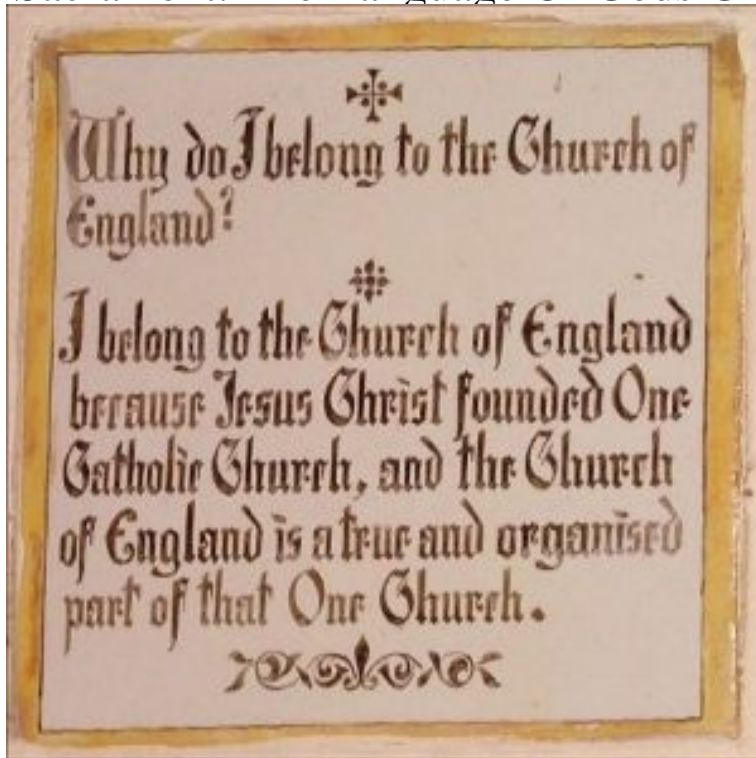 Why do I belong to the Church of
England?
I belong to the Church of England
because Jesus Christ founded One
Catholic Church, and the Church
of England is a true and organised
part of that One Church.